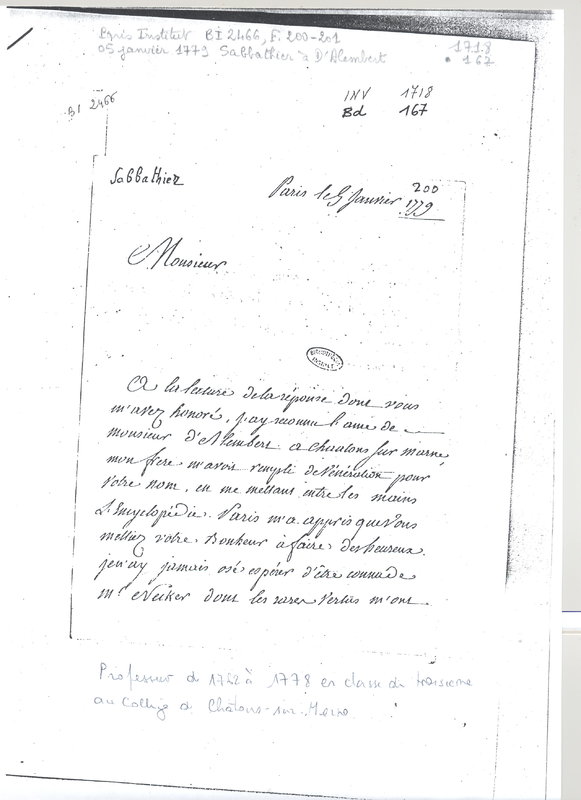 Paris Institut BI 2466, F. 200-201
05 janvier 1779 Sabbathier à D'Alembert
1718
167
BI 2466
INV 1718
Bd 167
Sabbathier
200
Paris le 5 Janvier 1779
Monsieur
A la lecture de la réponse dont vous
m'avez honoré, j'ay reconnu l'ame de
monsieur d'Alembert. a chaalons sur marne,
mon frere m'avoit rempli de Vénération pour
votre nom, en me mettant entre les mains
L'Encyclopédie. Paris m'a appris que Vous
mettiez votre Bonheur à faire des heureux.
je n'ay jamais osé espérer d'être connu de
mr. Necker dont les rares Vertus m'ont
Professeur de 1762 à 1778 en classe de troisième
au Collège de Châlons-sur-Marne